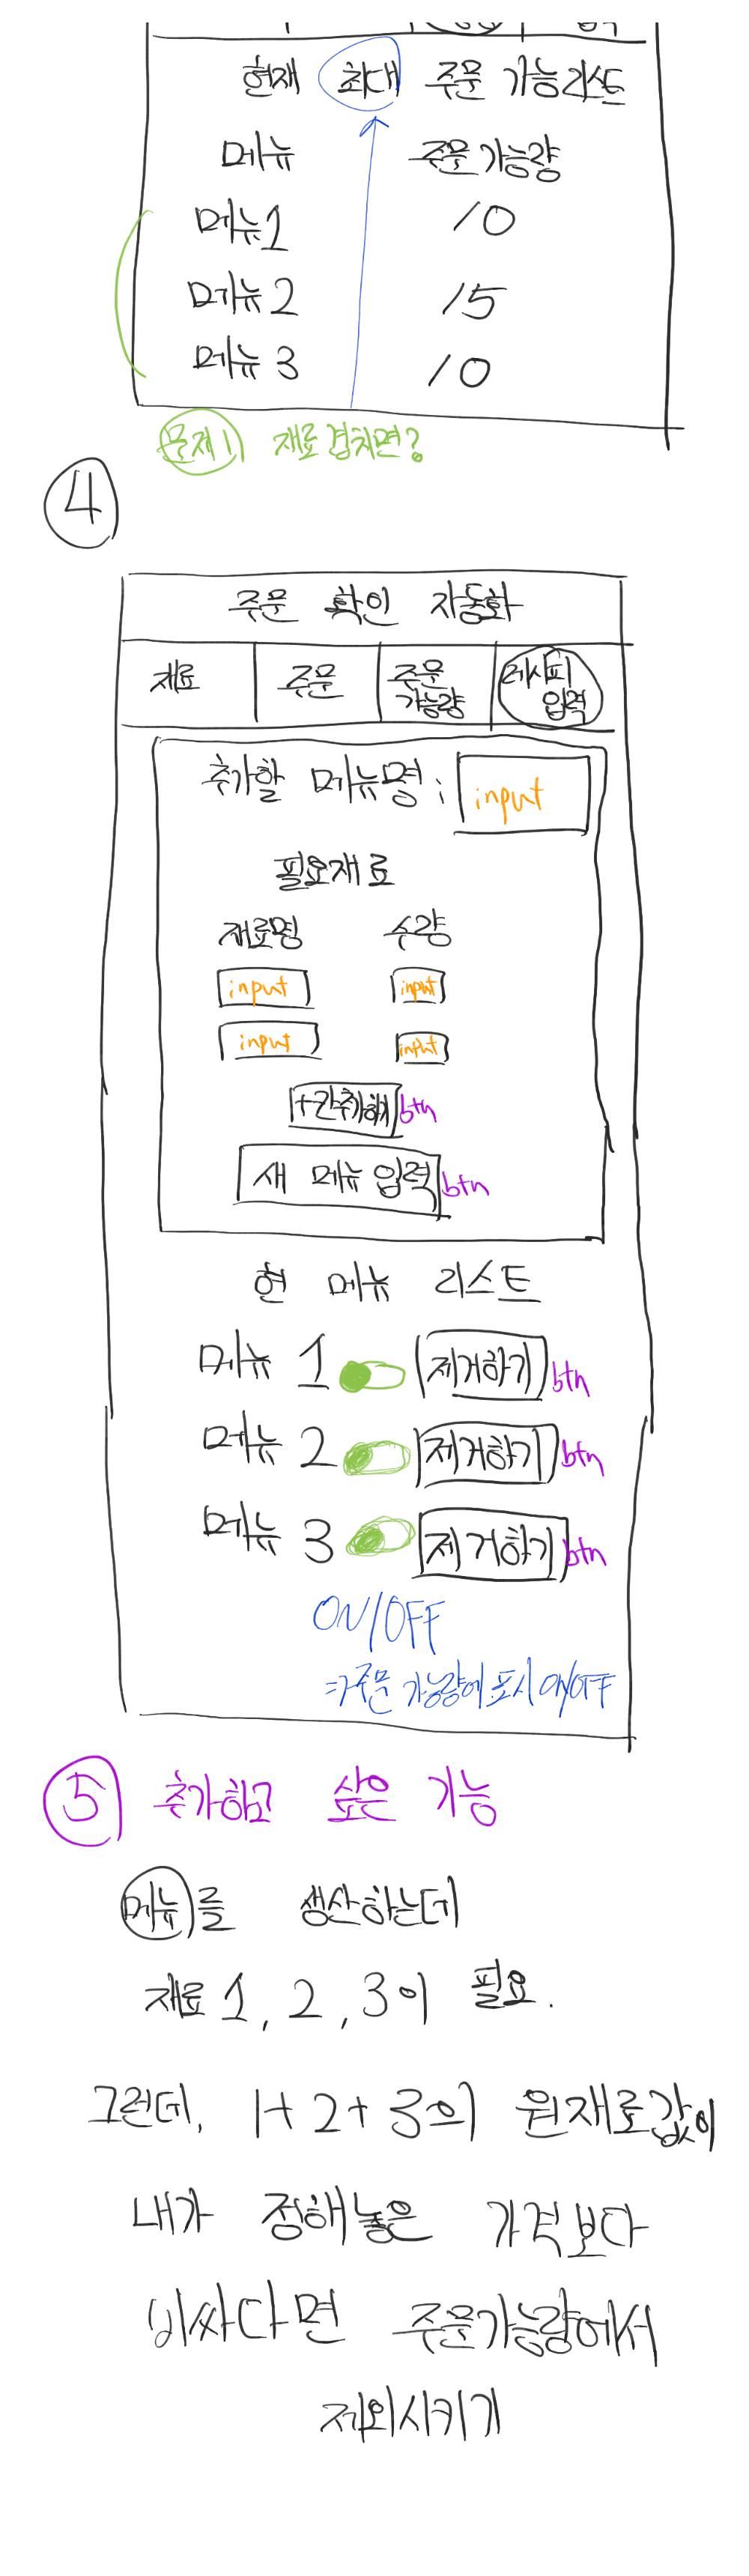 현재 최대 주문 가능리스트
메뉴 주문가능량
메뉴1 10
메뉴2 15
메뉴3 10
문제1) 재료겹치면?
④
주문 확인 자동화
재료 주문 주문 가능량 레시피 입력
추가할 메뉴명 : input
필요재료
재료명 수량
input input
input input
+칸추가하기 btn
새 메뉴 입력 btn
현 메뉴 리스트
메뉴 1 제거하기 btn
메뉴 2 제거하기 btn
메뉴 3 제거하기 btn
ON/OFF
=>주문 가능량에 표시 ON/OFF
⑤ 추가하고 싶은 기능
메뉴를 생산하는데
재료 1, 2, 3이 필요.
그런데, 1+2+3의 원재료값이
내가 정해놓은 가격보다
비싸다면 주문가능량에서
제외시키기